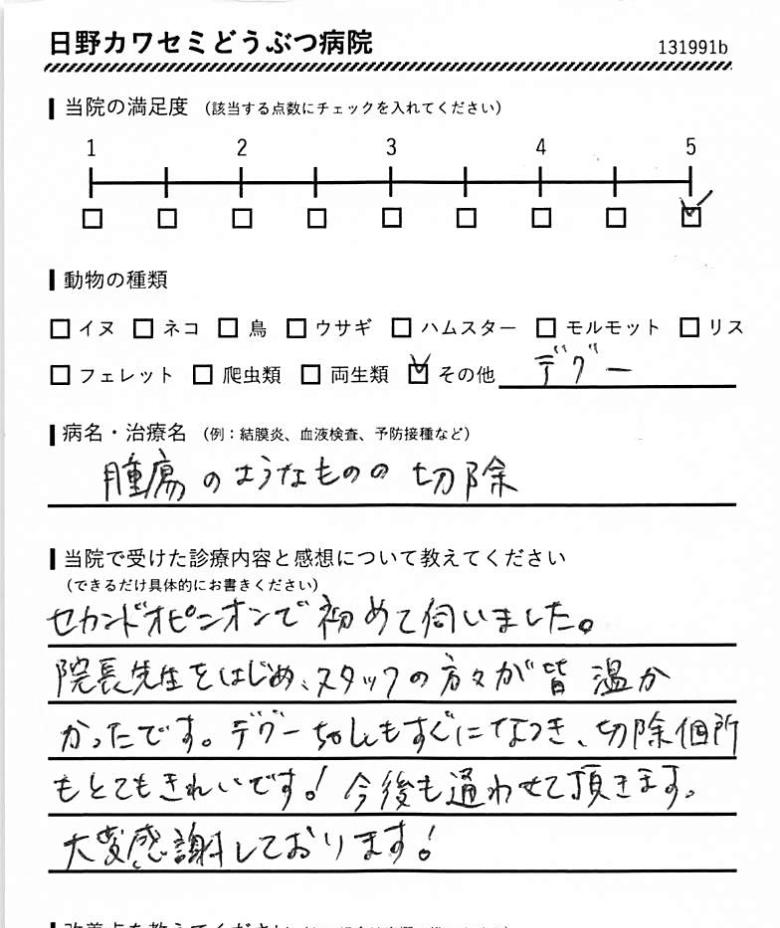 日野カワセミどうぶつ病院
131991b
当院の満足度 (該当する点数にチェックを入れてください)
1 2 3 4 5
動物の種類
イヌ ネコ 鳥 ウサギ ハムスター モルモット リス
フェレット 爬虫類 両生類 その他 デグー
病名・治療名 (例:結膜炎、血液検査、予防接種など)
腫瘍のようなものの切除
当院で受けた診療内容と感想について教えてください
(できるだけ具体的にお書きください)
セカンドオピニオンで初めて伺いました。
院長先生をはじめ、スタッフの方々が皆温か
かったです。デグーちゃんもすぐになつき、切除個所
もとてもきれいです!今後も通わせて頂きます。
大変感謝しております!